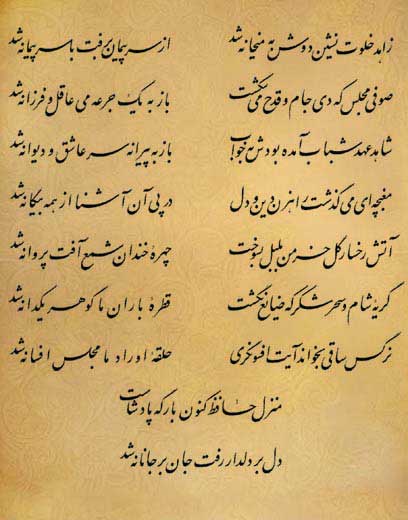 زاهد خلوت نشین دوش به میخانه شد از سر پیمان برفت با سر پیمانه شد
صوفی مجلس که دی جام و قدح می‌شکست باز به یک جرعه می عاقل و فرزانه شد
شاهد عهد شباب آمده بودش به خواب باز به پیرانه سر عاشق و دیوانه شد
مغبچه‌ای می‌گذشت راهزن دین و دل در پی آن آشنا از همه بیگانه شد
آتش رخسار گل خرمن بلبل بسوخت چهرهٔ خندان شمع آفت پروانه شد
گریهٔ شام و سحر شکر که ضایع نگشت قطرهٔ باران ما گوهر یکدانه شد
نرگس ساقی بخواند آیت افسونگری حلقهٔ اوراد ما مجلس افسانه شد
منزل حافظ کنون بارگه پادشاست
دل بر دلدار رفت جان بر جانانه شد